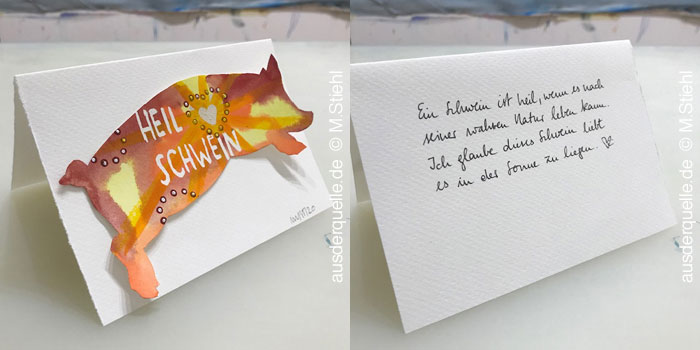 HEIL
SCHWEIN
ausderquelle.de © M.Stiehl
Ein Schwein ist heil, wenn es nach
seiner wahren Natur leben kann.
Ich glaube dieses Schwein liebt
es in der Sonne zu liegen.
ausderquelle.de © M.Stiehl